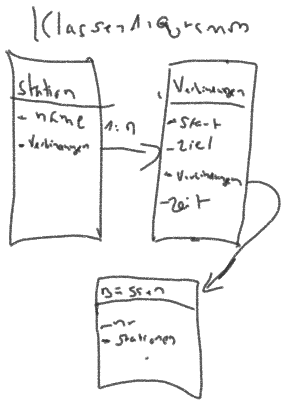 Klassendiagramm
Station
- name
- Verbindungen
1:n
Verbindungen
- Start
- Ziel
- Verbindungen
- Zeit
- nr
- Stationen